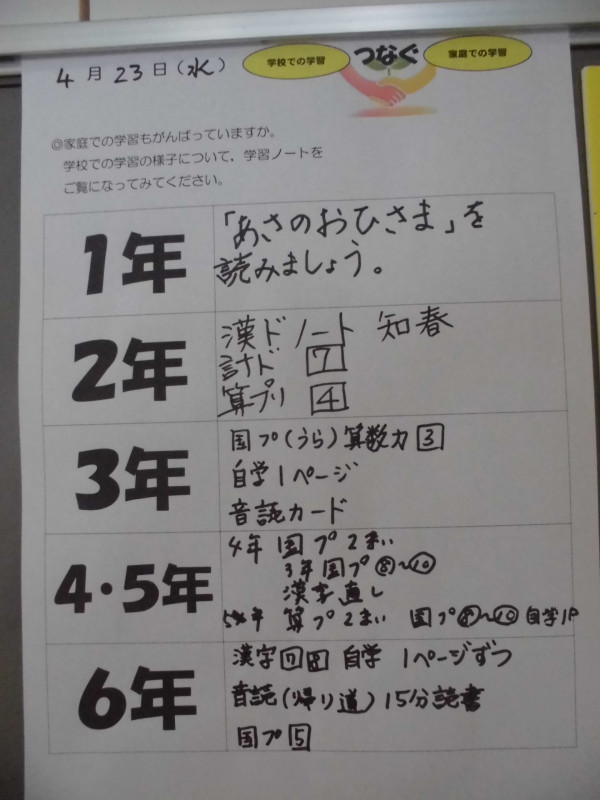 4月23日(水)
学校での学習 つなぐ 家庭での学習
◎家庭での学習もがんばっていますか。
学校での学習の様子について，学習ノートを
ご覧になってみてください。
1年
「あさのおひさま」を
読みましょう。
2年
漢ドノート 知春
計ド 7
算プリ 4
3年
国プ(うら)算数力 3
自学1ページ
音読カード
4・5年
4年 国プ2まい
3年国プ⑧〜⑩
漢字直し
5年 算プ2まい 国プ⑧〜⑩ 自学1P
6年
漢字 7 8 自学 1ページずつ
音読(帰り道)15分読書
国プ 5